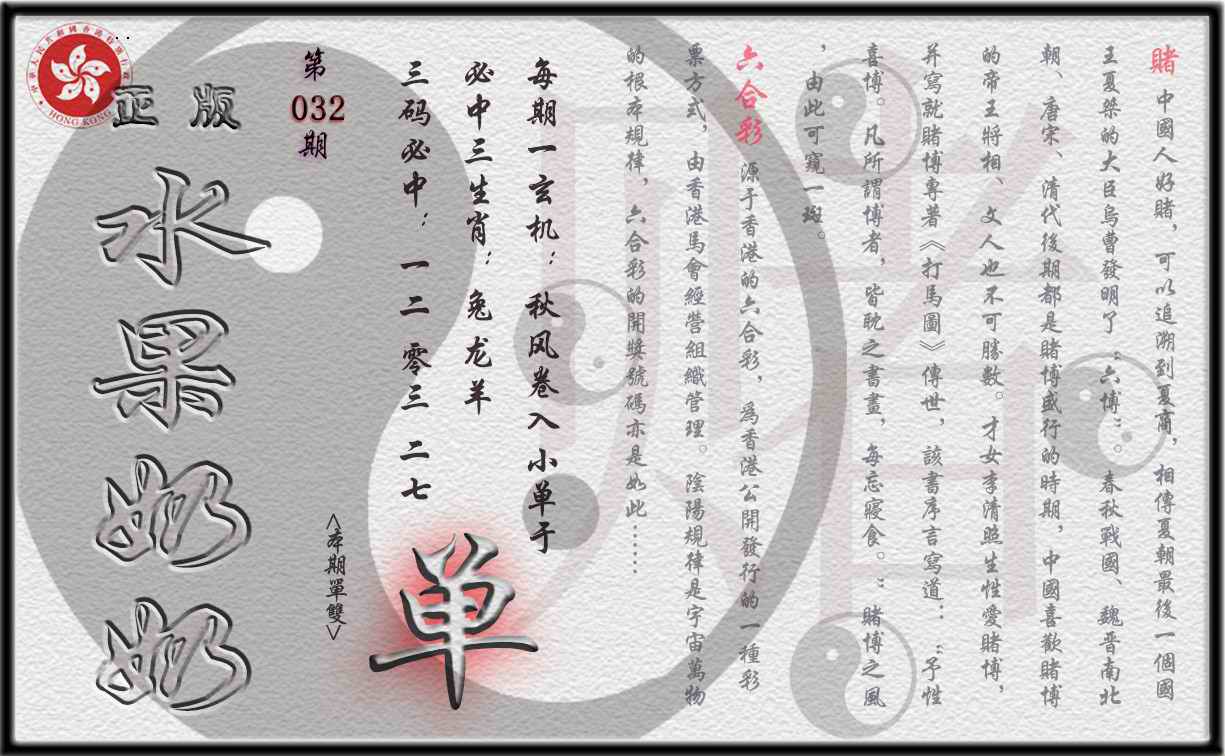 賭 中國人好賭，可以追溯到夏商，相傳夏朝最後一個國
王夏桀的大臣烏曹發明了“六博”。春秋戰國、魏晋南北
朝、唐宋、清代後期都是賭博盛行的時期，中國喜歡賭博
的帝王將相、文人也不可勝數。才女李清照生性愛賭博，
并寫就賭博專著《打馬圖》傳世，該書序言寫道：“予性
喜博。凡所謂博者，皆耽之書畫，每忘寢食。”賭博之風
，由此可窺一斑。
六合彩 源于香港的六合彩，爲香港公開發行的一種彩
票方式，由香港馬會經營組織管理。陰陽規律是宇宙萬物
的根本規律，六合彩的開獎號碼亦是如此……
每期一玄机：秋风卷入小单于
必中三生肖：兔龙羊
三码必中：一二 零三 二七
单
<本期單雙>
第
032
期
正版
水果奶奶
中華人民共和國香港特別行政區
HONG KONG